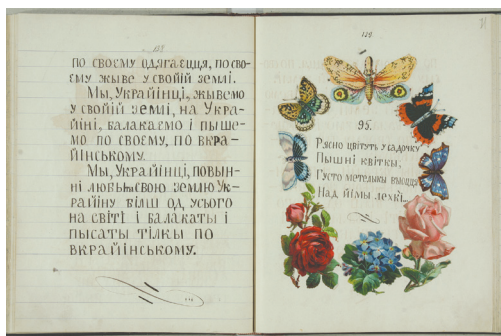 по своєму одягаєцця, по сво-
єму жыве у свойій землі.
Мы, Украйінці, жывемо
у свойій землі, на Укра-
йіні, балакаємо і пыше-
мо по своєму, по вкра-
йінському.
Мы, Украйінці, повын-
ні любыты свою землю Ук-
райіну білш од усього
на світі і балакаты і
пысаты тілкы по
вкрайінському.
129
95.
Рясно цвітуть у садочку
Пышні квіткы,
Густо метелыкы вьюцця
Над йімы лехкі...